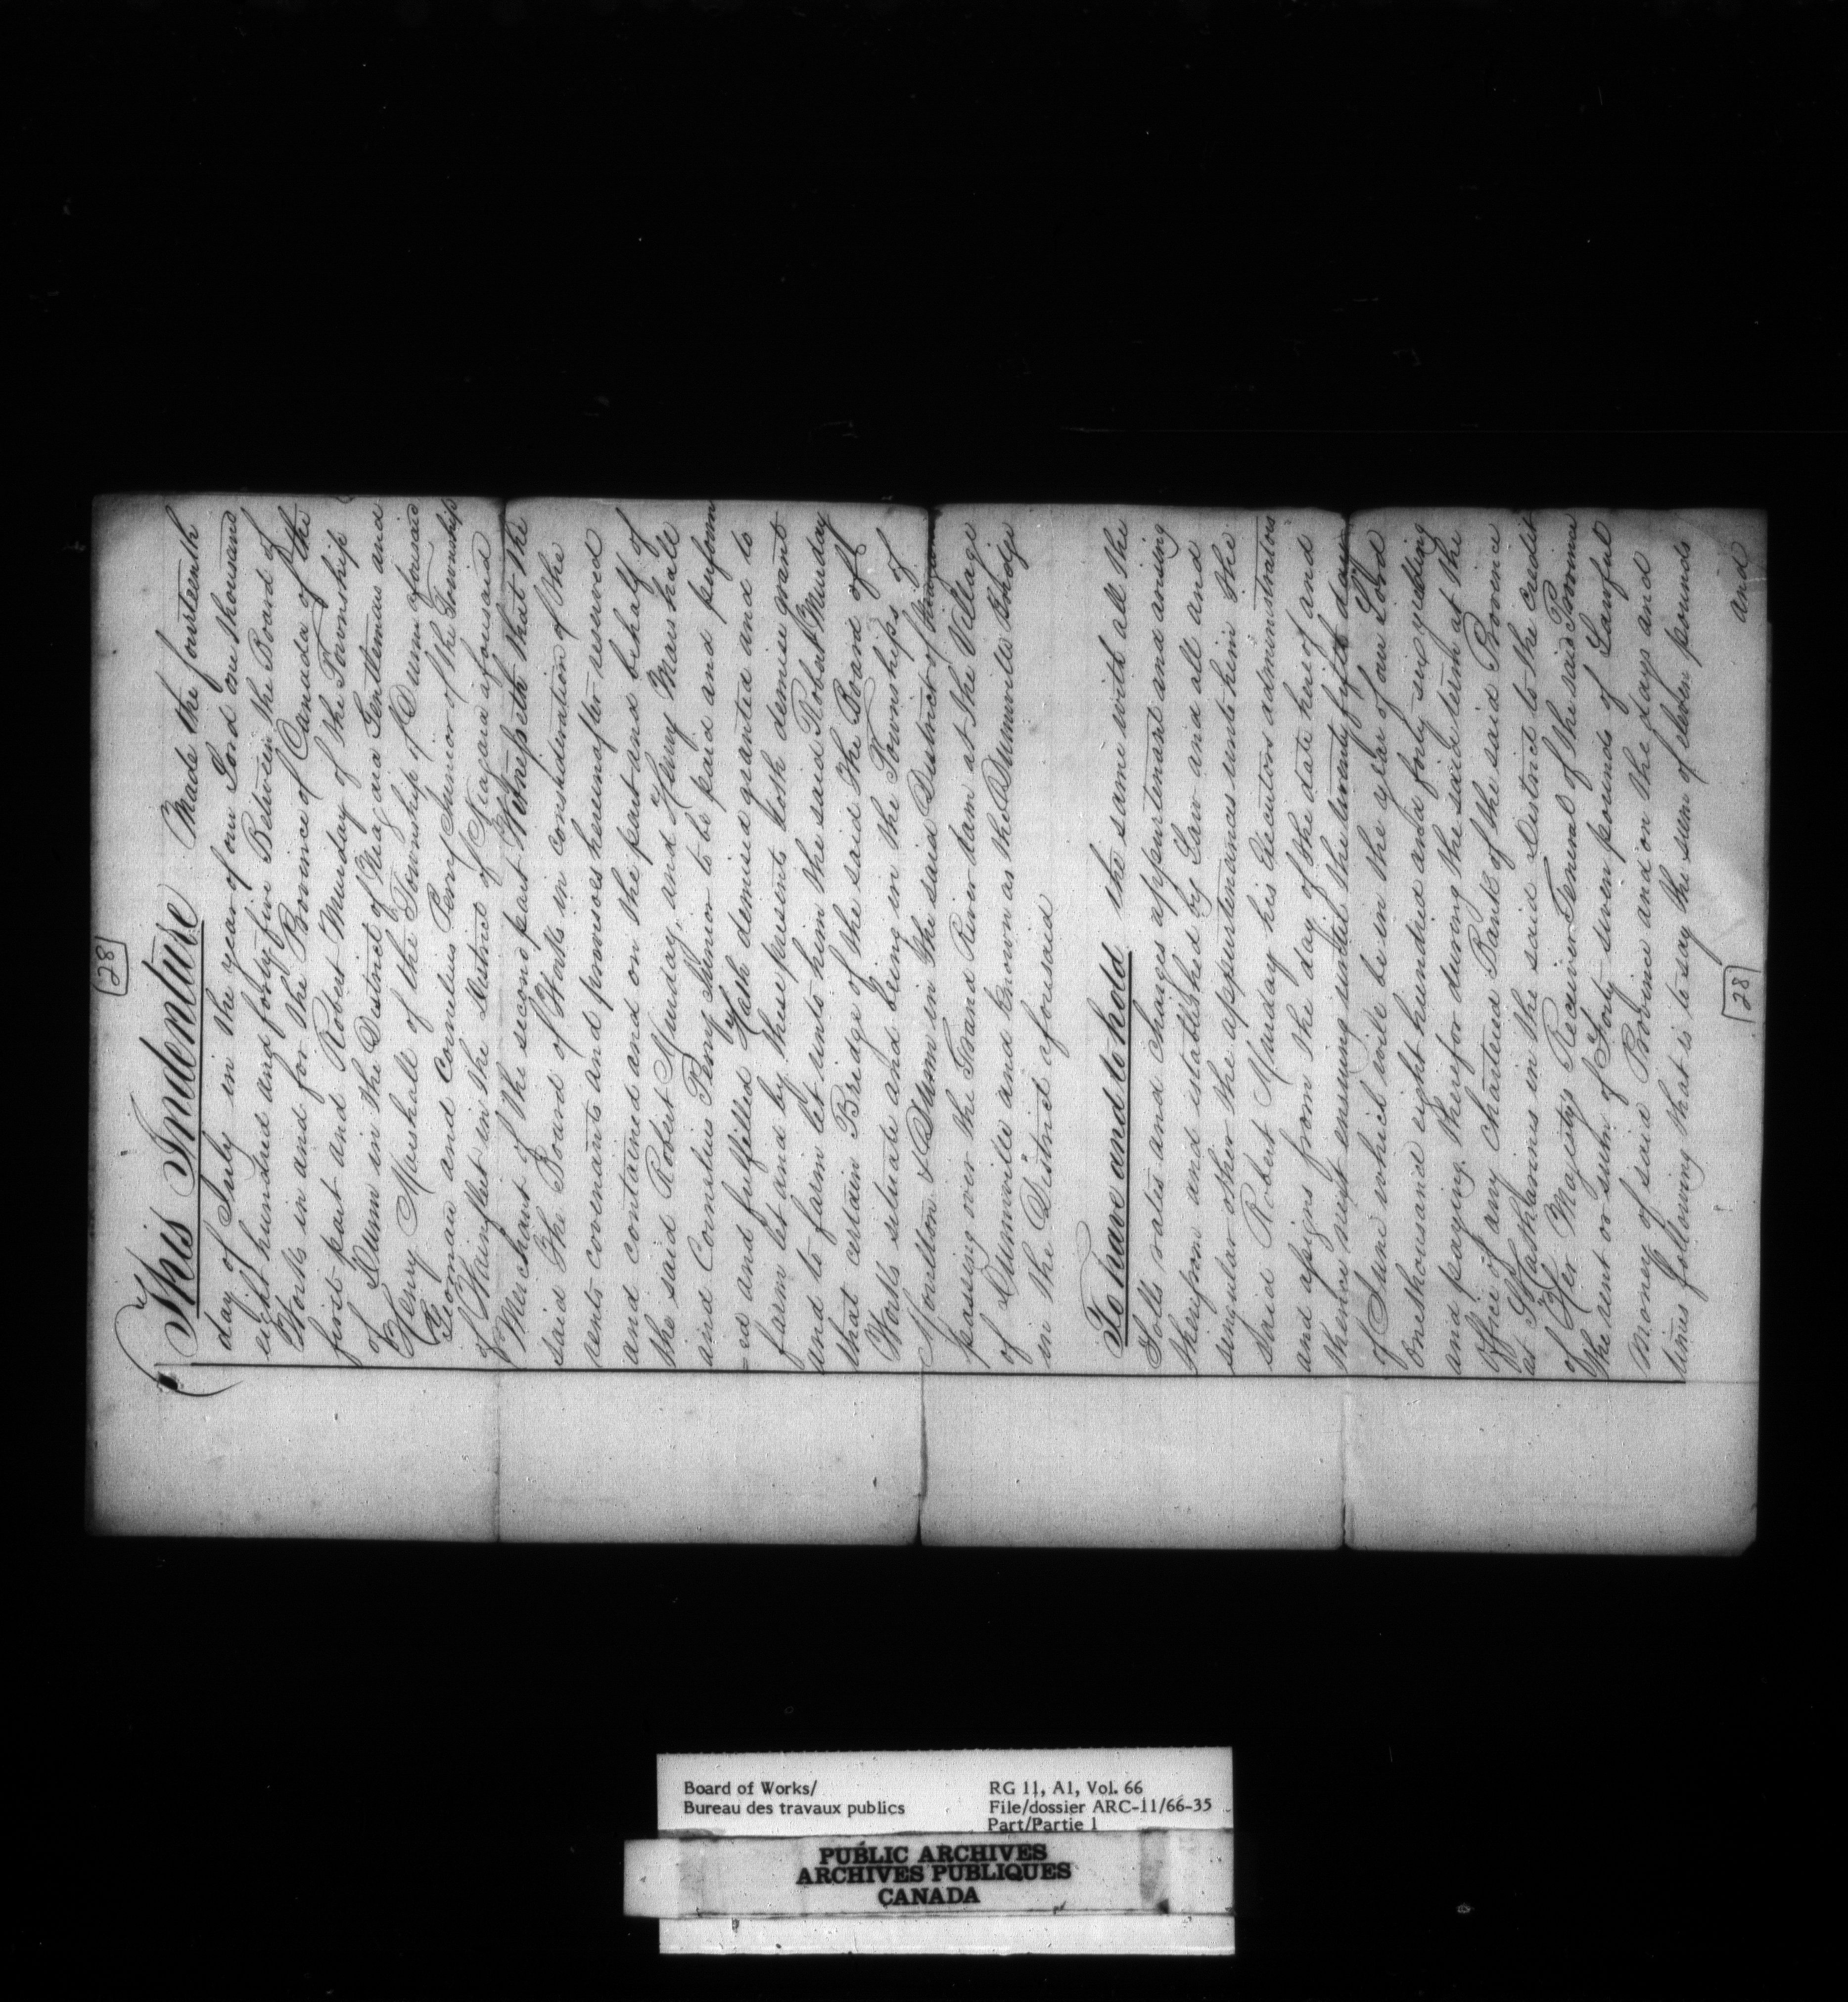 28
This Indenture Made the fourteenth
day of July in the year of our Lord one thousand
eight hundred and forty five Between the Board of
Works in and for the Province of Canada of the
first part and Robert Munday of the Township
of Dunn in the District of Niagara Gentleman and
Henry Marshall of the Township of Dunn aforesaid
Yeoman and Cornelius Perry Junior of the Township
of Wainfleet in the District of Niagara aforesaid
Merchant of the second part Witnesseth that the
said The Board of Works in consideration of the
rents covenants and provisoes hereinafter reserved
and contained and on the part and behalf of
the said Robert Munday, and Henry Marshall
and Cornelius Perry Junior to be paid and perform
-ed and fulfilled Hath demised granted and to
farm let and by these presents doth demise grant
and to farm let unto him the said Robert Munday
that certain Bridge of the said The Board of
Works situate and being in the Townships of
Moulton & Dunn in the said District of Niagara
passing over the Grand River dam at the Village
of Dunnville and known as the Dunnville Bridge
in the District aforesaid
To have and to hold the same with all the
Tolls rates and charges appurtenant and arising
therefrom and established by Law and all and
singular other the appurtenances unto him the
said Robert Munday his Executors administrators
and assigns from the day of the date hereof and
thence next ensuing until the twenty fifth day
of June which will be in the year of our Lord
one thousand eight hundred and forty six yielding
and paying therefor during the said term at the
Office of any chartered Bank of the said Province
at St Catharines in the said District to the credit
of Her Majestys Receiver General of the said Province
the rent or sum of Forty seven pounds of Lawful
money of said Province and on the days and
times following that is to say the sum of eleven pounds
and
28
Board of Works/
Bureau des travaux publics
RG 11, A1, Vol. 66
File/dossier ARC-11/66-35
Part/Partie 1
PUBLIC ARCHIVES
ARCHIVES PUBLIQUES
CANADA